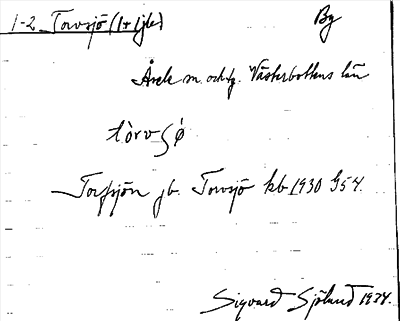 1-2 Torvsjö (1+1 jbr) By
Åsele sn. och tg. Västerbottens län
tòrvʃǿ
Torfsjön jb. Torvsjö kb 1930 G54.
Sigvard Sjölund 1934.